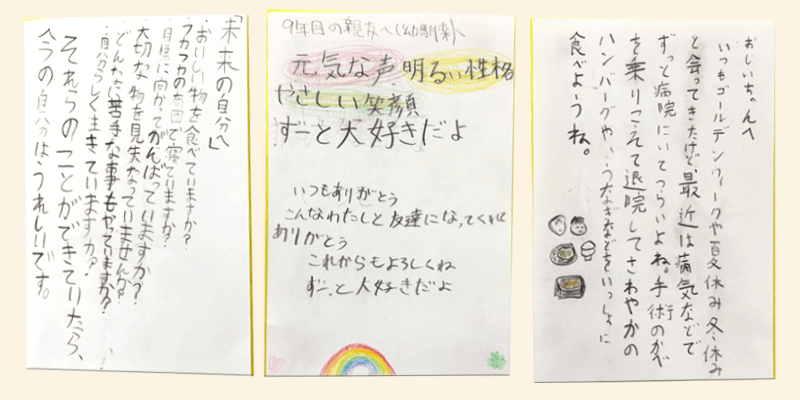 「未来の自分へ」
・おいしい物を食べていますか?
・フカフカの布団で寝ていますか?
・目標に向かってがんばっていますか?
・大切な物を見失なっていませんか?
・どんなに苦手な事もやっていますか?
・自分らしく生きていますか?
それらのことができていたら、
今の自分はうれしいです。
9年目の親友へ(幼馴染)へ
元気な声 明るい性格
やさしい笑顔
ずーと大好きだよ
いつもありがとう
こんなわたしと友達になってくれて
ありがとう
これからもよろしくね
ずーっと大好きだよ
おじいちゃんへ
いつもゴールデンウィークや夏休み冬休み
と会ってきたけど、最近は病気などで
ずっと病院にいてつらいよね。手術のかべ
を乗りこえて退院してさわやかの
ハンバーグや、うなぎなどをいっしょに
食べようね。